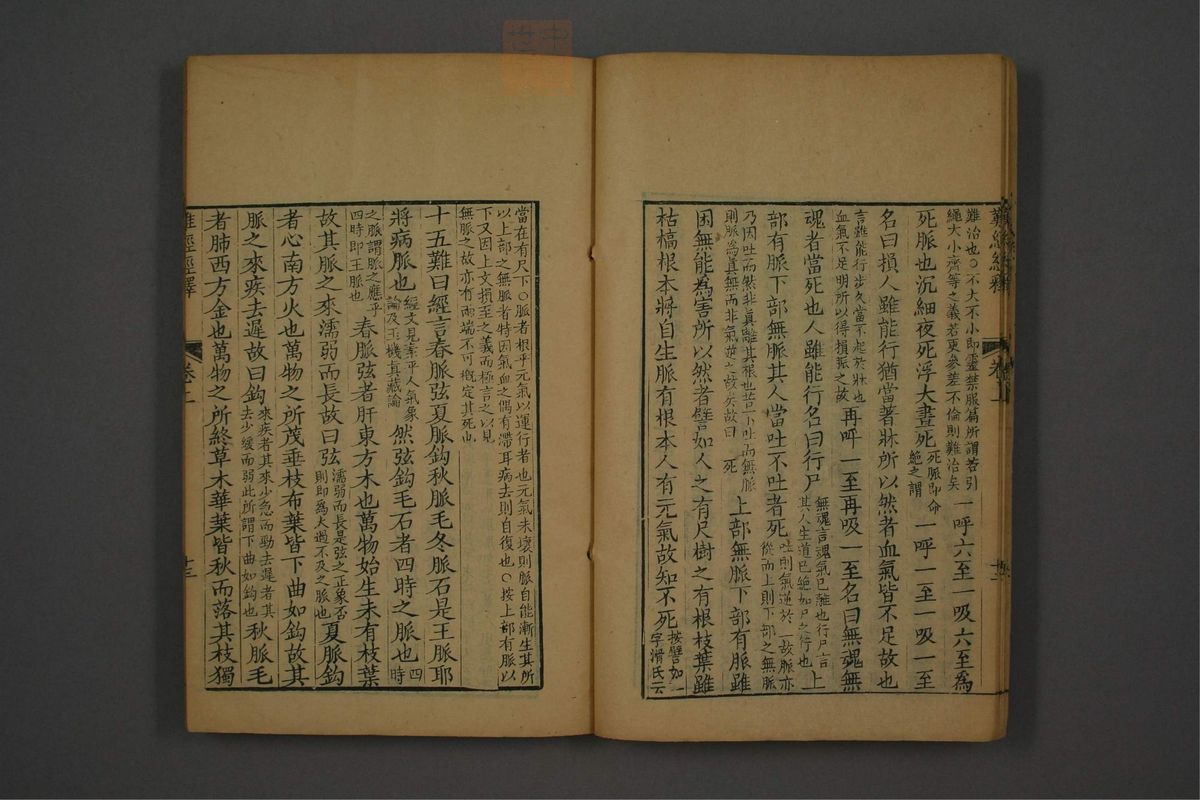 難經經釋
卷上
難治也○不大不小即靈禁服篇所謂若引
繩大小齊等之義若更參差不倫則難治矣
一呼六至一吸六至為
死脈也沉細夜死浮大晝死
死脈即命
絶之謂
一呼一至一吸一至
名曰損人雖能行猶當著牀所以然者血氣皆不足故也
言雖能行步久當不起於牀也
血氣不足明所以得損脈之故
再呼一至再吸一至名曰無魂無
魂者當死也人雖能行名曰行尸
無魂言魂氣已離也行尸言
其人生道已絶如尸之行也
上
部有脈下部無脈其人當吐不吐者死
吐則氣逆於一故脈亦
從而上則下部之無脈
乃因吐而然非真離其根也苦一下吐而無脈
則脈為真無而非氣逆之故矣故曰死
上部無脈下部有脈雖
困無能為害所以然者譬如人之有尺樹之有根枝葉雖
枯槁根本將自生脈有根本人有元氣故知不死
按譬如一
字滑氏云
當在有尺下○脈者根乎元氣以運行者也元氣未壞則脈自能漸生其所
以上部之無脈者特因氣血之偶有滯耳病去則自復也○按上部有脈以
下又因上文損至之義而極言之以見
無脈之故亦有兩端不可概定其死也
十五難曰經言春脈弦夏脈鈎秋脈毛冬脈石是王脈耶
將病脈也
經文見素平人氣象
論及玉機真藏論
然弦鈎毛石者四時之脈也
四時
之脈謂脈之應乎
四時即王脈也
春脈弦者肝東方木也萬物始生未有枝葉
故其脈之來濡弱而長故曰弦
濡弱而長是弦之正象否
則即為太過不及之脈也
夏脈鈎
者心南方火也萬物之所茂垂枝布葉皆下曲如鈎故其
脈之來疾去遲故曰鈎
來疾者其來少急而勁去遲者其
去少緩而弱此所謂下曲如鈎也
秋脈毛
者肺西方金也萬物之所終草木華葉皆秋而落其枝獨
難經經釋
卷上
廿三